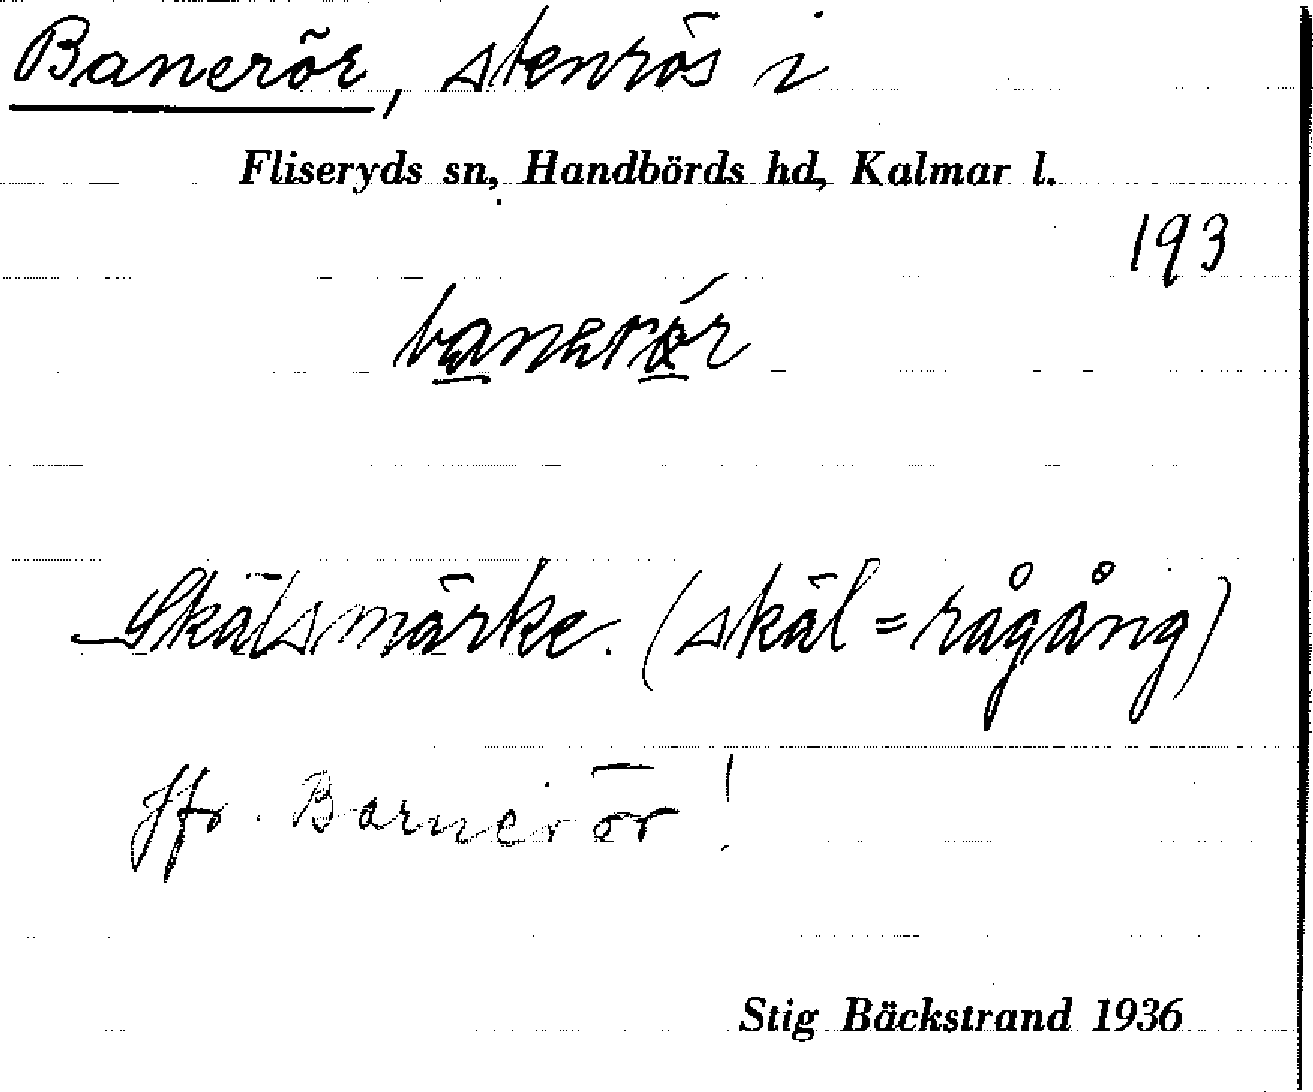 Banerör, stenrös i
Fliseryds sn, Handbörds hd, Kalmar l.
193
Skälsmärke. (skäl = rågång)
Jfr. Barnerör!
Stig Bäckstrand 1936